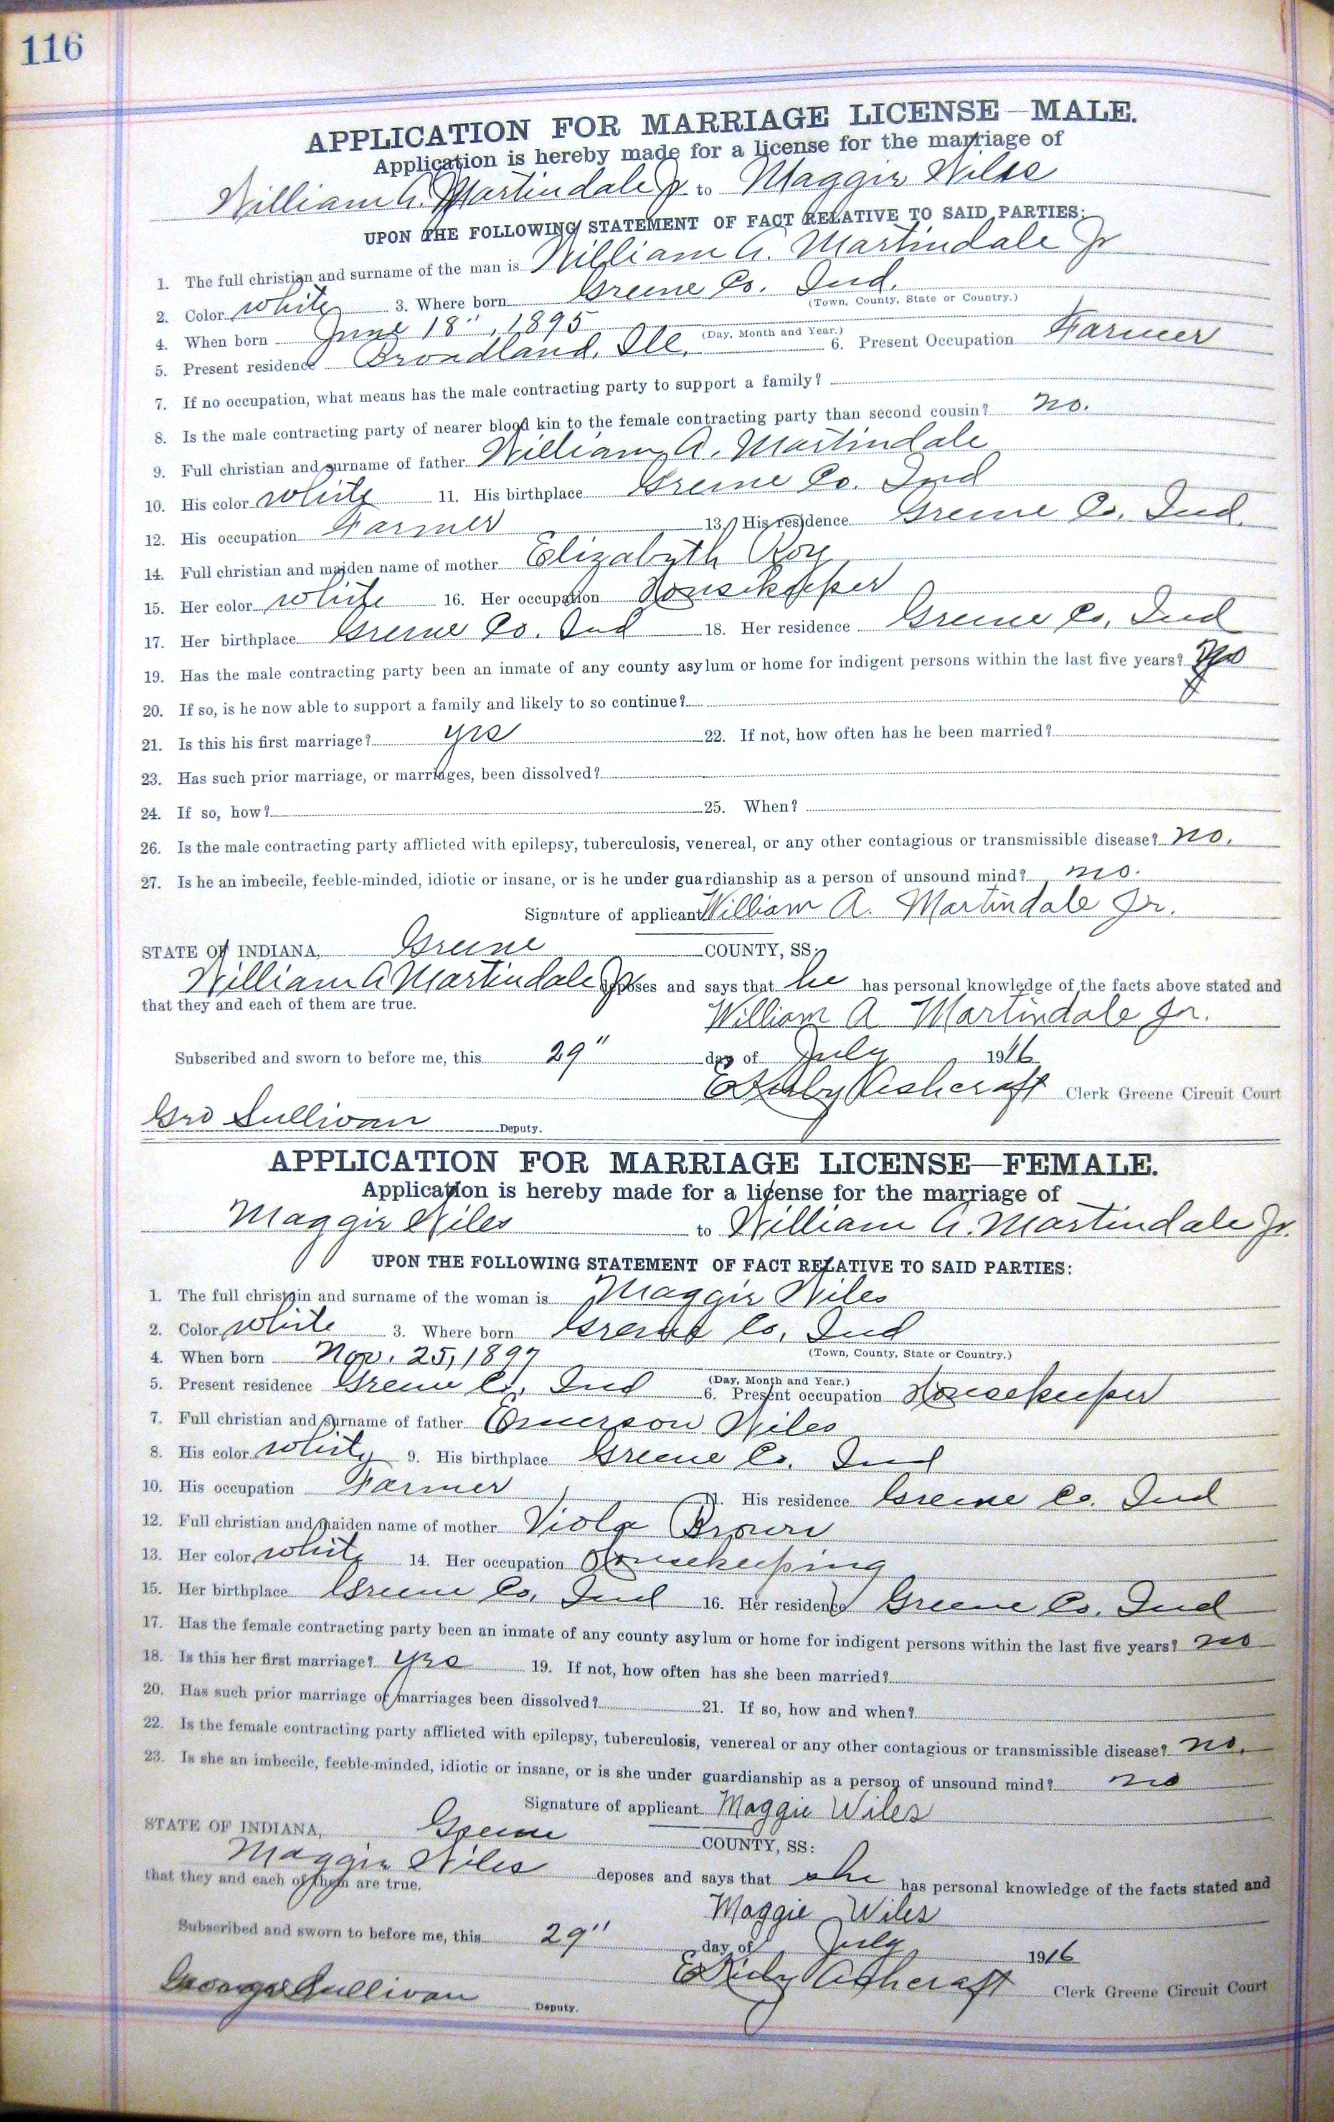 116
APPLICATION FOR MARRIAGE LICENSE—MALE.
Application is hereby made for a license for the marriage of
William A. Martindale Jr. to Maggie Wiles
UPON THE FOLLOWING STATEMENT OF FACT RELATIVE TO SAID PARTIES:
1. The full christian and surname of the man is William A. Martindale Jr
2. Color white 3. Where born Greene Co. Ind.
(Town, County, State or Country.)
4. When born June 18", 1895
(Day, Month and Year.)
5. Present residence Broadland, Ill. 6. Present Occupation Farmer
7. If no occupation, what means has the male contracting party to support a family?
8. Is the male contracting party of nearer blood kin to the female contracting party than second cousin? no.
9. Full christian and surname of father William A. Martindale
10. His color white 11. His birthplace Greene Co. Ind
12. His occupation Farmer 13. His residence Greene Co. Ind.
14. Full christian and maiden name of mother Elizabeth Roy
15. Her color white 16. Her occupation Housekeeper
17. Her birthplace Greene Co. Ind 18. Her residence Greene Co, Ind
19. Has the male contracting party been an inmate of any county asylum or home for indigent persons within the last five years? no
20. If so, is he now able to support a family and likely to so continue?
21. Is this his first marriage? yes 22. If not, how often has he been married?
23. Has such prior marriage, or marriages, been dissolved?
24. If so, how? 25. When?
26. Is the male contracting party afflicted with epilepsy, tuberculosis, venereal, or any other contagious or transmissible disease? no.
27. Is he an imbecile, feeble-minded, idiotic or insane, or is he under guardianship as a person of unsound mind? no.
Signature of applicant William A. Martindale Jr.
STATE OF INDIANA, Greene COUNTY, SS:
William A Martindale Jr deposes and says that he has personal knowledge of the facts above stated and
that they and each of them are true.
William A Martindale Jr.
Subscribed and sworn to before me, this 29" day of July 1916
E Kirby Ashcraft Clerk Greene Circuit Court
Geo Sullivan Deputy.
APPLICATION FOR MARRIAGE LICENSE—FEMALE.
Application is hereby made for a license for the marriage of
Maggie Wiles to William A. Martindale Jr.
UPON THE FOLLOWING STATEMENT OF FACT RELATIVE TO SAID PARTIES:
1. The full christain and surname of the woman is Maggie Wiles
2. Color white 3. Where born Greene Co, Ind
(Town, County, State or Country.)
4. When born Nov. 25, 1897
(Day, Month and Year.)
5. Present residence Greene Co, Ind 6. Present occupation Housekeeper
7. Full christian and surname of father Emerson Wiles
8. His color white 9. His birthplace Greene Co. Ind
10. His occupation Farmer 11. His residence Greene Co. Ind
12. Full christian and maiden name of mother Viola Brown
13. Her color white 14. Her occupation Housekeeping
15. Her birthplace Greene Co, Ind 16. Her residence Greene Co. Ind
17. Has the female contracting party been an inmate of any county asylum or home for indigent persons within the last five years? no
18. Is this her first marriage? yes 19. If not, how often has she been married?
20. Has such prior marriage or marriages been dissolved? 21. If so, how and when?
22. Is the female contracting party afflicted with epilepsy, tuberculosis, venereal or any other contagious or transmissible disease? no.
23. Is she an imbecile, feeble-minded, idiotic or insane, or is she under guardianship as a person of unsound mind? no
Signature of applicant Maggie Wiles
STATE OF INDIANA, Greene COUNTY, SS:
Maggie Wiles deposes and says that she has personal knowledge of the facts stated and
that they and each of them are true.
Maggie Wiles
Subscribed and sworn to before me, this 29" day of July 1916
E Kirby Ashcraft Clerk Greene Circuit Court
George Sullivan Deputy.